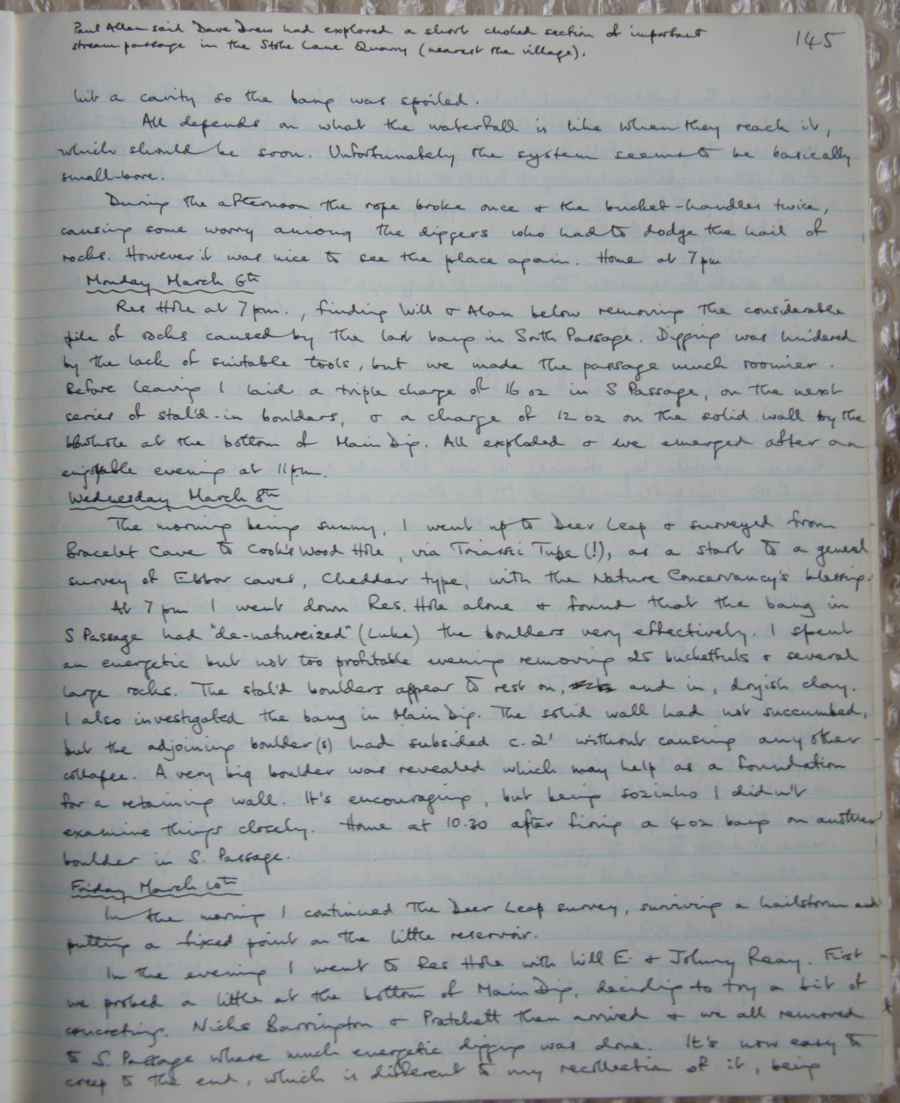 Paul Allen said Dave Drew had explored a short choked section of important
stream passage in the Stoke Lane Quarry (nearest the village).
145
hit a cavity so the bang was spoiled.
All depends on what the waterfall is like when they reach it,
which should be soon. Unfortunately the system seems to be basically
small-bore.
During the afternoon the rope broke once & the bucket-handles twice,
causing some worry among the diggers who had to dodge the hail of
rocks. However it was nice to see the place again. Home at 7 pm
Monday March 6th
Res Hole at 7 pm., finding Will & Alan below removing the considerable
pile of rocks caused by the last bang in South Passage. Digging was hindered
by the lack of suitable tools, but we made the passage much roomier.
Before leaving I laid a triple charge of 16 oz in S Passage, on the next
series of stal'd-in boulders, & a charge of 12 oz on the solid wall by the
at the bottom of Main Dip. All exploded & we emerged after an
enjoyable evening at 11 pm.
Wednesday March 8th
The morning being sunny, I went up to Deer Leap & surveyed from
Bracelet Cave to Cook's Wood Hole, via Triassic Tube (!), as a start to a general
survey of Ebbor caves, Cheddar type, with the Nature Conservancy's blessing.
At 7 pm I went down Res. Hole alone & found that the bang in
S Passage had "de-natureized" (Luke) the boulders very effectively. I spent
an energetic but not too profitable evening removing 25 bucketfuls & several
large rocks. The stal'd boulders appear to rest on, and in, dryish clay.
I also investigated the bang in Main Dip. The solid wall had not succumbed,
but the adjoining boulder(s) had subsided c. 2' without causing any other
collapse. A very big boulder was revealed which may help as a foundation
for a retaining wall. It's encouraging, but being sozinho I didn't
examine things closely. Home at 10.30 after firing a 4 oz bang on another
boulder in S. Passage.
Friday March 10th
In the morning I continued the Deer Leap survey, surviving a hailstorm and
putting a fixed point on the little reservoir.
In the evening I went to Res Hole with Will E. & Johnny Reay. First
we probed a little at the bottom of Main Dip, deciding to try a bit of
concreting. Nicks Barrington & Pratchett then arrived & we all removed
to S. Passage where much energetic digging was done. It's now easy to
creep to the end, which is different to my recollection of it, being